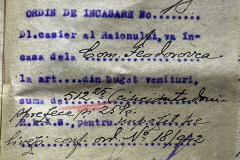 ORDIN DE INCASARE No.
Dl.casier al Raionului, va in-
casa dela Com. Teodorovca
la art....din buget venituri,
suma de 512 25 (Cincisute două
sprezece și 25%
R.M.S., pentru
conf. ord. No 18/942